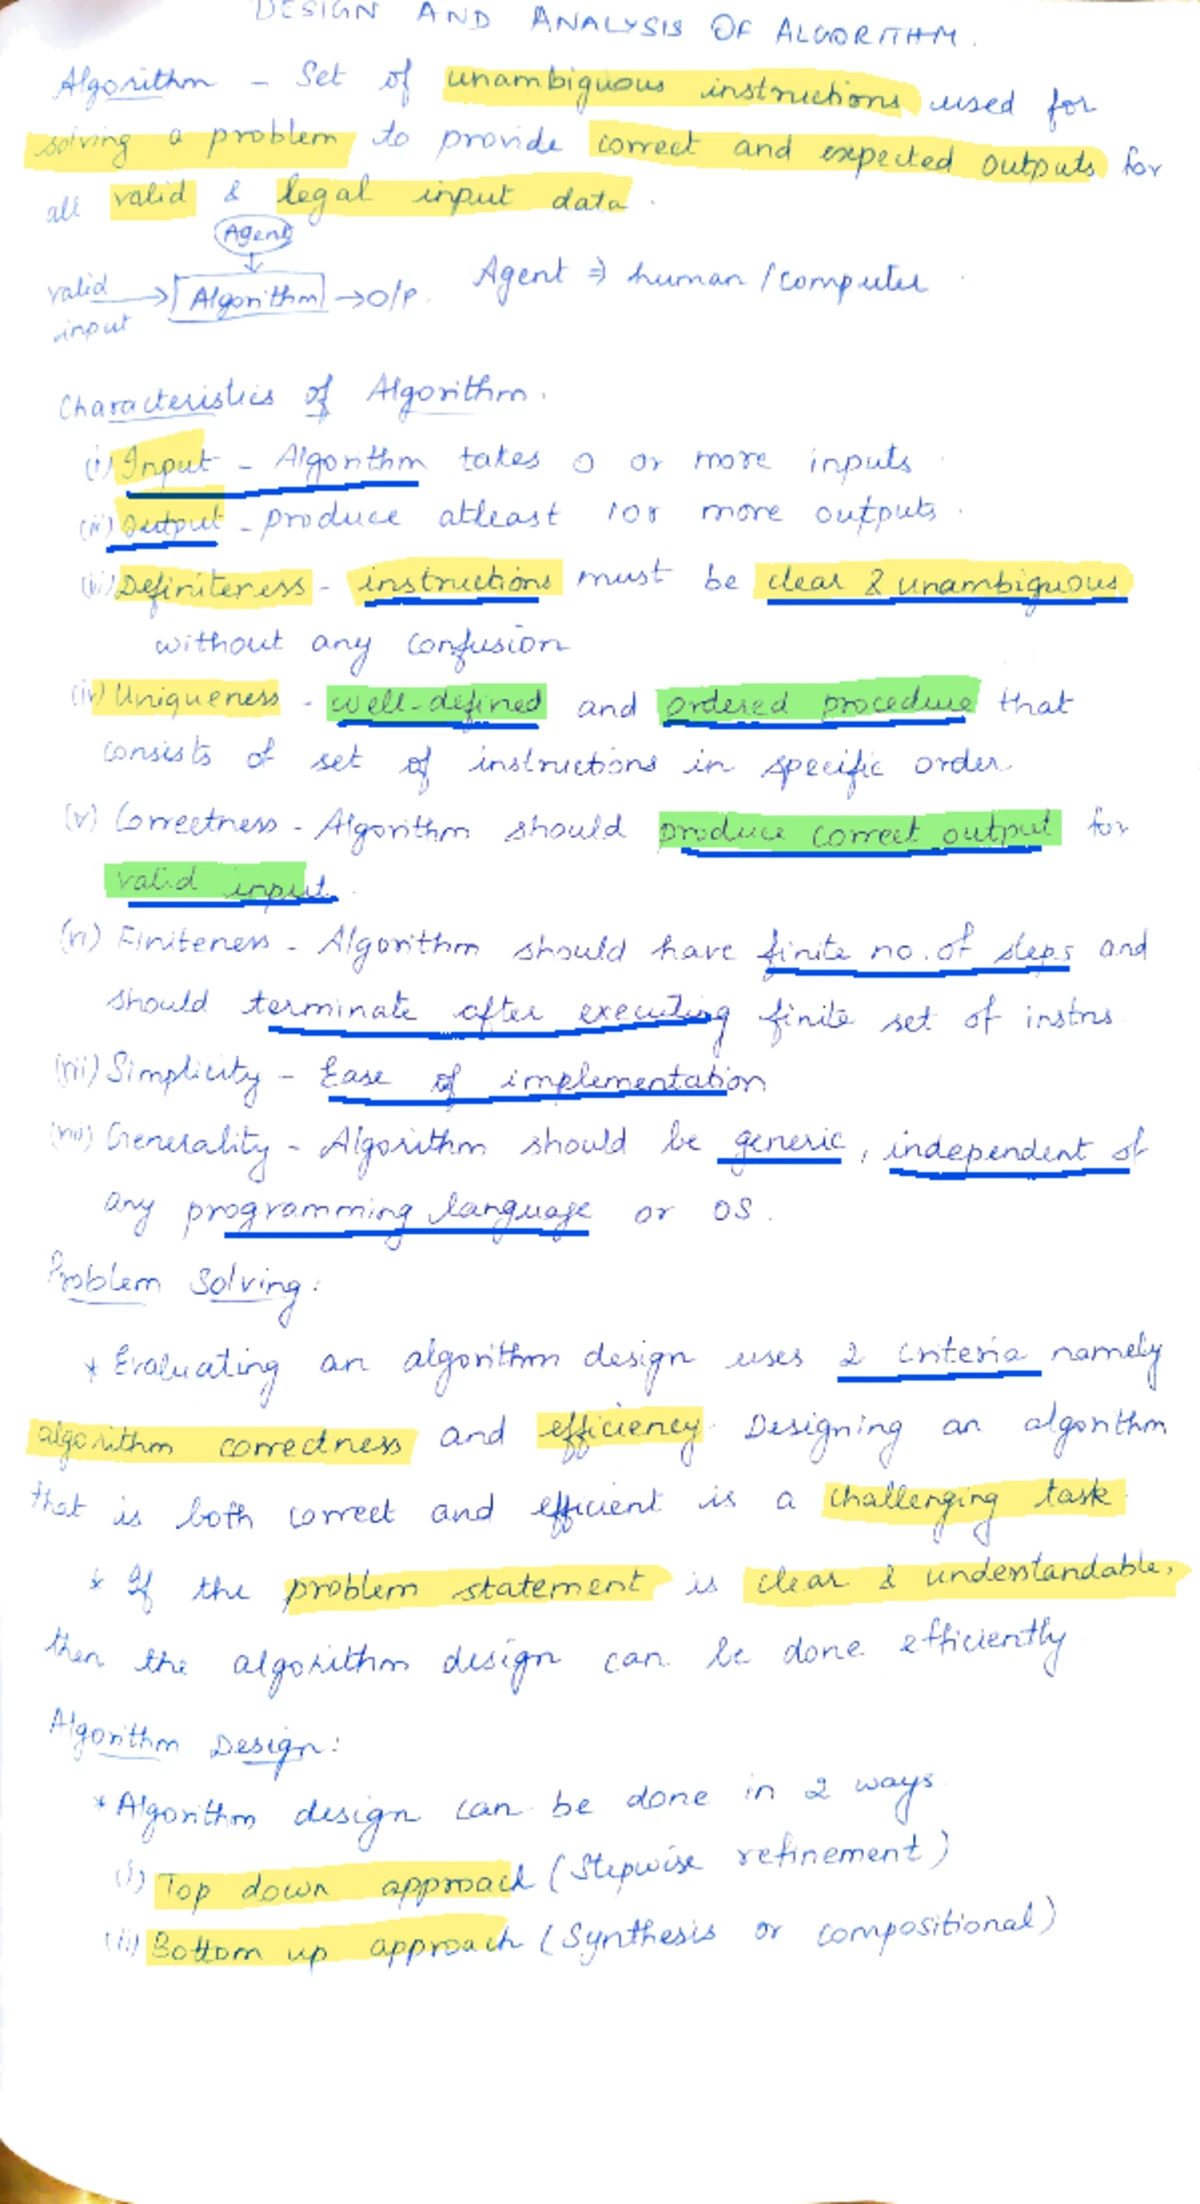 DESIGN AND ANALYSIS OF ALGORITHM.
Algorithm - Set of unambiguous instructions used for
solving a problem to provide correct and expected outputs for
all valid & legal input data.
Agent
valid input → Algorithm → O/P. Agent ⇒ human / computer
Characteristics of Algorithm.
(i) Input - Algorithm takes 0 or more inputs
(ii) Output - produce atleast 1 or more outputs.
(iii) Definiteness - instructions must be clear & unambiguous
without any confusion
(iv) Uniqueness - well-defined and ordered procedure that
consists of set of instructions in specific order
(v) Correctness - Algorithm should produce correct output for
valid input.
(vi) Finiteness - Algorithm should have finite no. of steps and
should terminate after executing finite set of instns
(vii) Simplicity - Ease of implementation
(viii) Generality - Algorithm should be generic, independent of
any programming language or OS.
Problem Solving:
* Evaluating an algorithm design uses 2 criteria namely
algorithm correctness and efficiency. Designing an algorithm
that is both correct and efficient is a challenging task.
* If the problem statement is clear & understandable,
then the algorithm design can be done efficiently
Algorithm Design:
* Algorithm design can be done in 2 ways
(i) Top down approach (Stepwise refinement)
(ii) Bottom up approach (Synthesis or compositional)